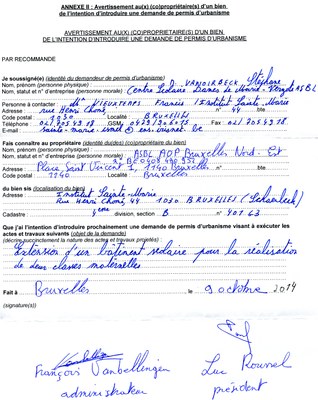 ANNEXE II : Avertissement au(x) (co)propriétaire(s) d'un bien
de l'intention d'introduire une demande de permis d'urbanisme
AVERTISSEMENT AU(X) (CO)PROPRIETAIRE(S) D'UN BIEN
DE L'INTENTION D'INTRODUIRE UNE DEMANDE DE PERMIS D'URBANISME
PAR RECOMMANDE
Je soussigné(e) (identité du demandeur de permis d'urbanisme)
Nom, prénom (personne physique) : VANOIRBECK, Stéphane
Nom, statut et n° d'entreprise (personne morale) : Centre Scolaire ASBL
Personne à contacter : Mr VIEUXTEMPS Francis Institut Sainte-Marie
rue Henri Chomé, n° 44 bte
Code postal 1030 Localité BRUXELLES
Tél. : GSM : Fax :
E-mail :
Fais connaître au propriétaire (identité du/des) (co)propriétaire du bien)
Nom, prénom (personne physique) :
Nom, statut et n° d'entreprise (personne morale) : ASBL AOP Bruxelles Nord-Est
Adresse : Place Saint Vincent 1, 1140 Bruxelles
Code postal 1140 Localité Bruxelles
du bien sis (localisation du bien)
Institut Sainte-Marie
Rue Henri Chomé, 44 1030 BRUXELLES (Schaerbeek)
Cadastre : 4eme division, section B n°
Que j'ai l'intention d'introduire prochainement une demande de permis d'urbanisme visant à exécuter les
actes et travaux suivants (objet de la demande)
(décrire succinctement la nature des actes et travaux projetés) :
Extension d'un bâtiment scolaire pour la réalisation
de deux classes maternelles
Fait à Bruxelles le 9 octobre 2014
(signature(s))
François Vanbellingen Luc Roussel
administrateur président